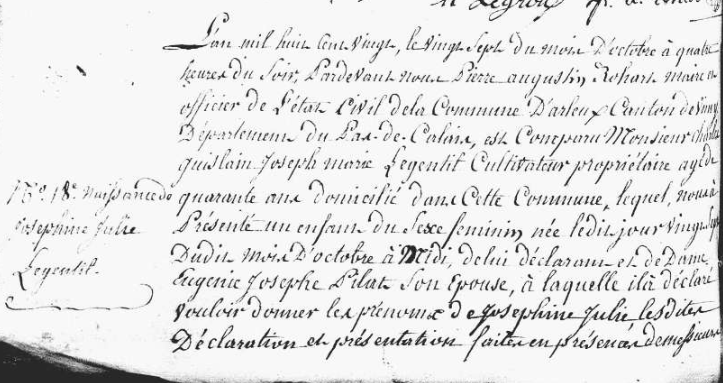 L'an mil huit cent vingt, le vingt sept du mois D'octobre à quatre
heures du Soir, Pardevant nous Pierre augustin Rohart maire
officier de L'état Civil dela Commune D'arleux Canton de Vimy
Département du Pas-de-Calais, est Comparu Monsieur Charles
guislain Joseph marie Legentil Cultivateur propriétaire agé de
quarante ans domicilié dans Cette Commune, lequel, nous à
Présenté un enfant du Sexe feminin née ledit jour vingt Sept
Dudit mois D'octobre à Midi, delui déclarant et de Dame
Eugenie Josephe Pilat Son Epouse, à laquelle ilà déclaré
vouloir donner les prénoms de Josephine Julie lesdites
Déclaration et présentation faites en présences de messieurs
18e. naissance de
Josephine Julie
Legentil.